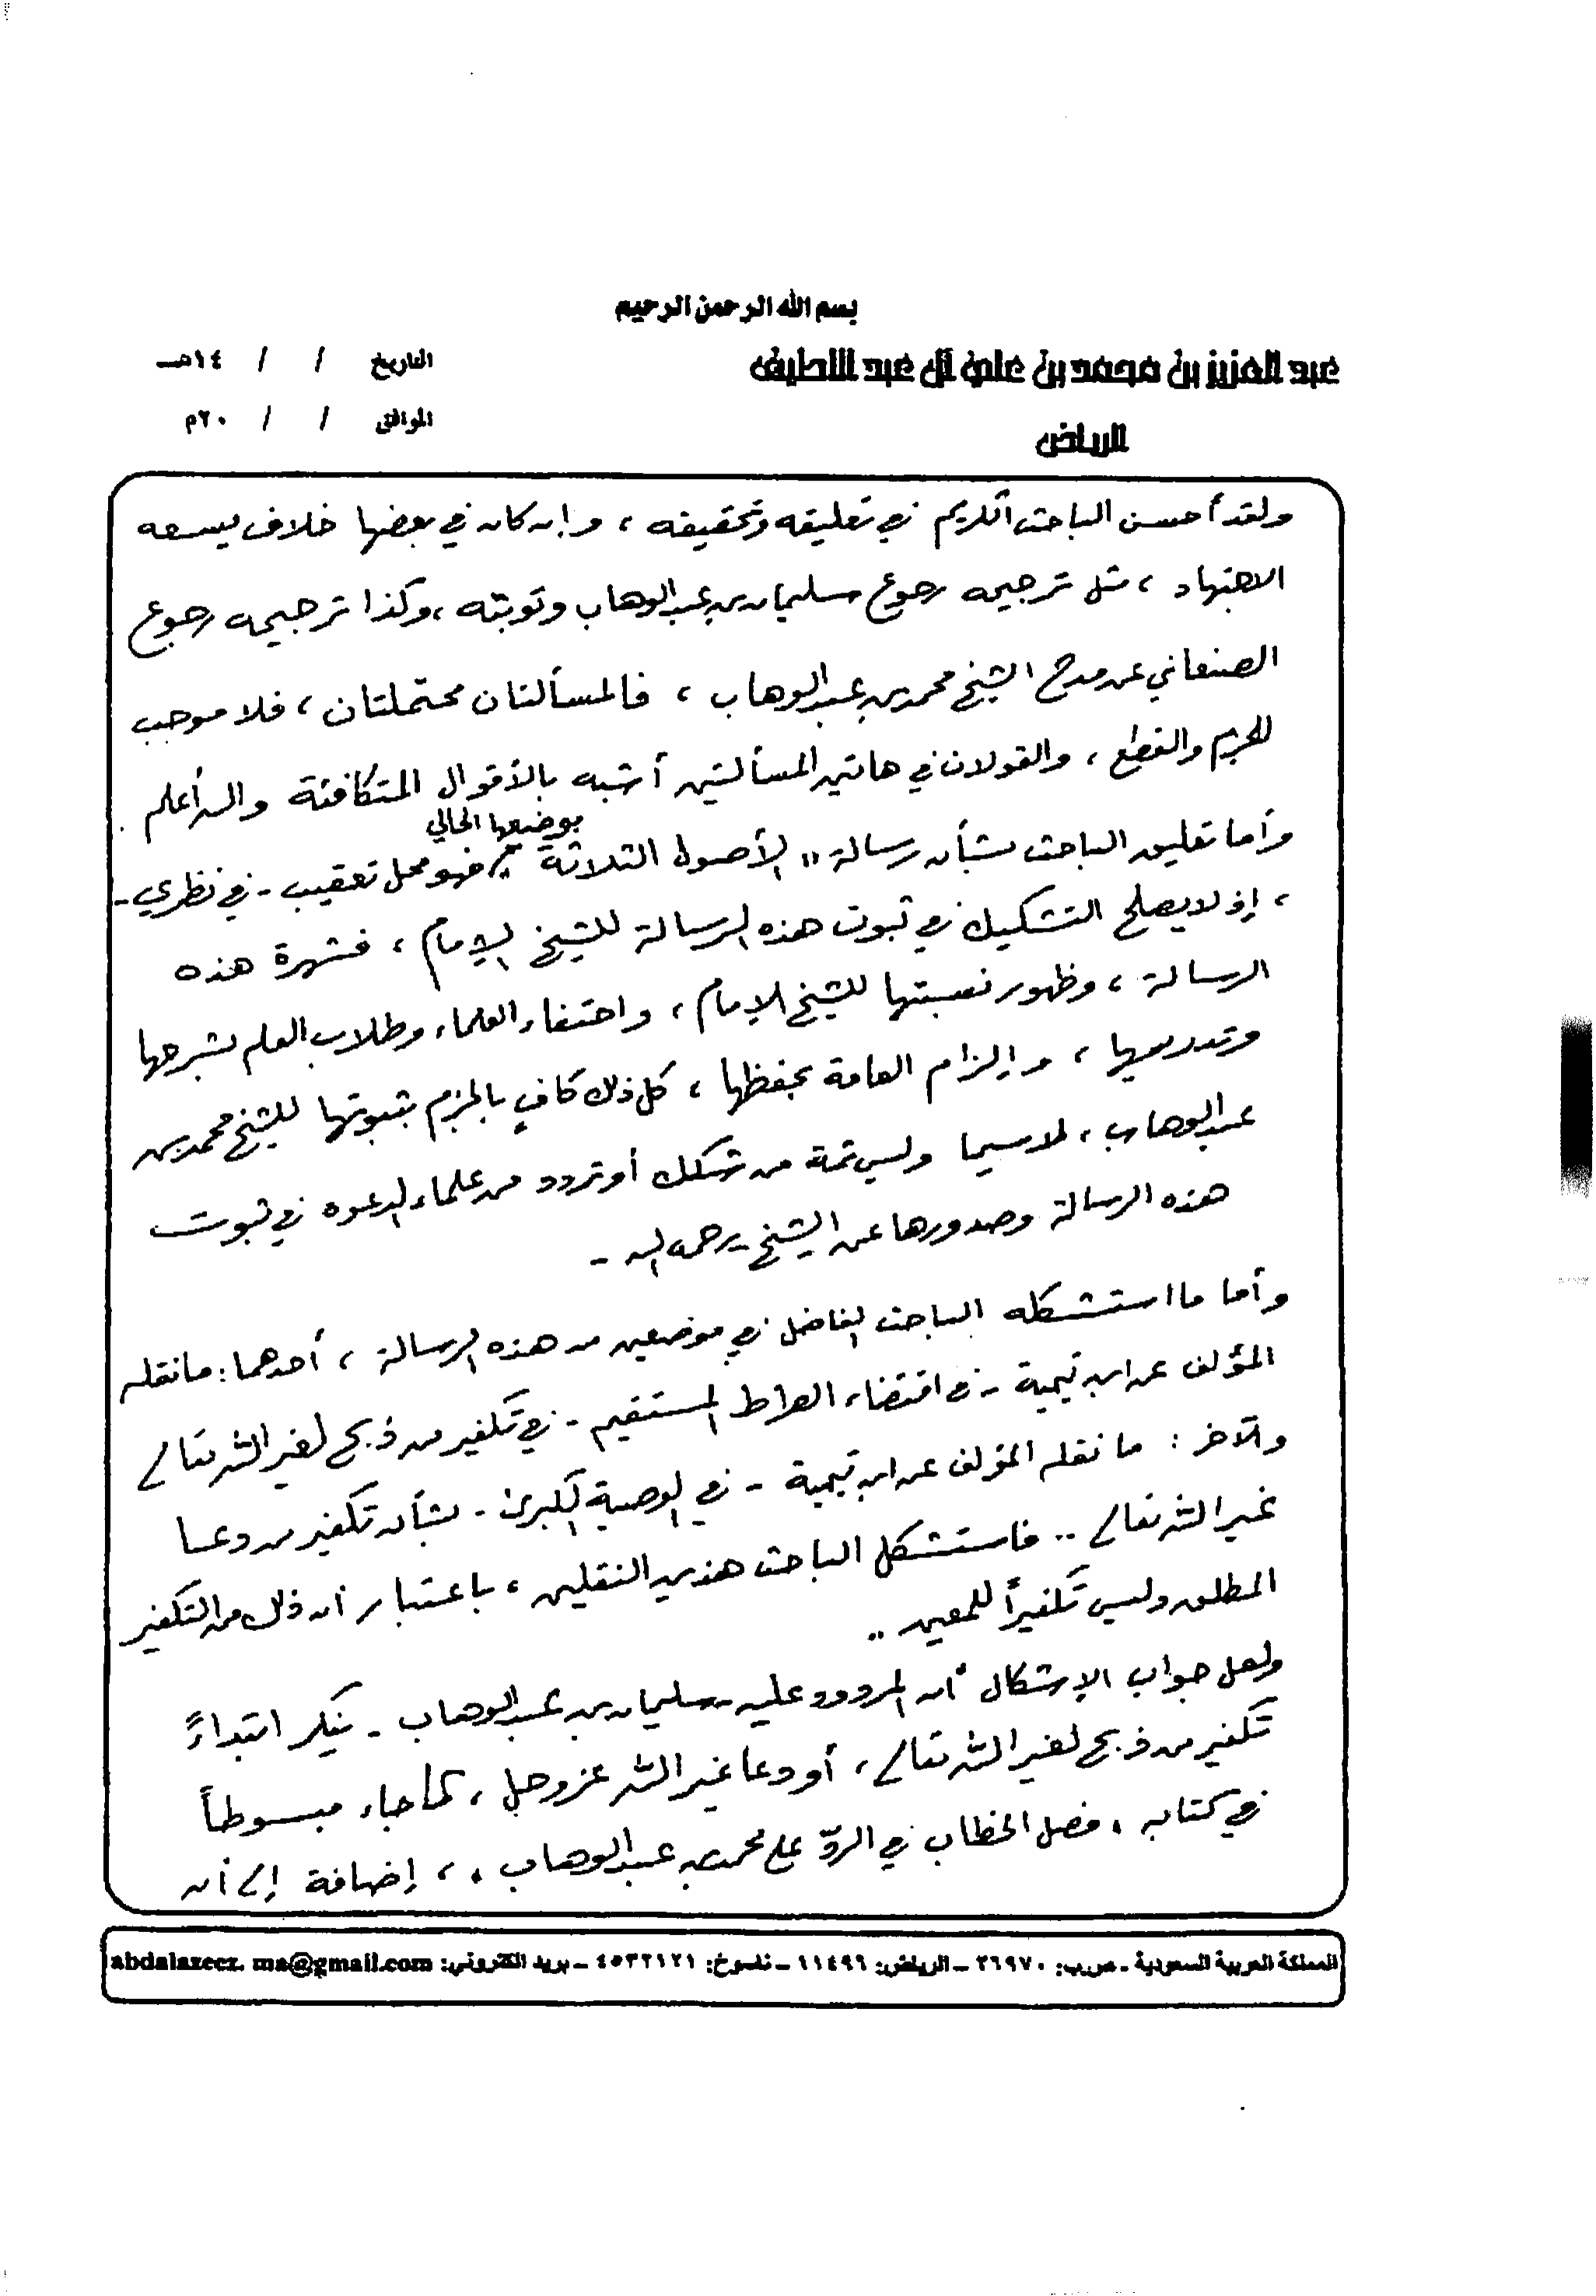 بسم الله الرحمن الرحيم
عبد العزيز بن محمد بن علي آل عبد اللطيف
التاريخ / / ١٤هـ
الموافق / / ٢٠م
الرياض
ولقد أحسن الباحث الكريم في تعليقه وتحقيقه ، وإن كان في بعضها خلاف يسعه
الاجتهاد ، مثل ترجيحه رجوع سليمان بن عبدالوهاب وتوبته ، وكذا ترجيحه رجوع
الصنعاني عن مدح الشيخ محمد بن عبدالوهاب ، فالمسألتان محتملتان ، فلا موجب
للجزم والقطع ، والقولان في هاتين المسألتين أشبه بالأقوال المتكافئة والله أعلم .
وأما تعليق الباحث بشأن رسالة " الأصول الثلاثة " بوضعها الحالي فهو محل تعقيب - في نظري -
، إذ لا يصلح التشكيك في ثبوت هذه الرسالة للشيخ الإمام ، فشهرة هذه
الرسالة ، وظهور نسبتها للشيخ الإمام ، واحتفاء العلماء وطلاب العلم بشرحها
وتدريسها ، وإلزام العامة بحفظها ، كل ذلك كافٍ بالجزم بثبوتها للشيخ محمد بن
عبدالوهاب ، لاسيما وليس ثمة من تشكك أو تردد من علماء الدعوة في ثبوت
هذه الرسالة وصدورها عن الشيخ - رحمه الله -
وأما ما استشكله الباحث الفاضل في موضعين من هذه الرسالة ، أحدهما : ما نقله
المؤلف عن ابن تيمية - في اقتضاء الصراط المستقيم - في تكفير من ذبح لغير الله تعالى
والآخر : ما نقله المؤلف عن ابن تيمية - في الوصية الكبرى - بشأن تكفير من دعا
غير الله تعالى .. فاستشكل الباحث هذين النقلين ، باعتبار أن ذلك من التكفير
المطلق وليس تكفيراً للمعين ..
ولعل جواب الإشكال أن المردود عليه - سليمان بن عبدالوهاب - ينكر ابتداءً
تكفير من ذبح لغير الله تعالى ، أو دعا غير الله عز وجل ، كما جاء مبسوطاً
في كتابه " فصل الخطاب في الردّ على محمد بن عبدالوهاب " ، إضافة إلى أن
المملكة العربية السعودية - ص.ب: ٢٦٩٧٠ - الرياض: ١١٤٩٦ - ناسوخ: ٤٥٣٢١٢١ - بريد الكتروني: abdalazeez. ma@gmail.com